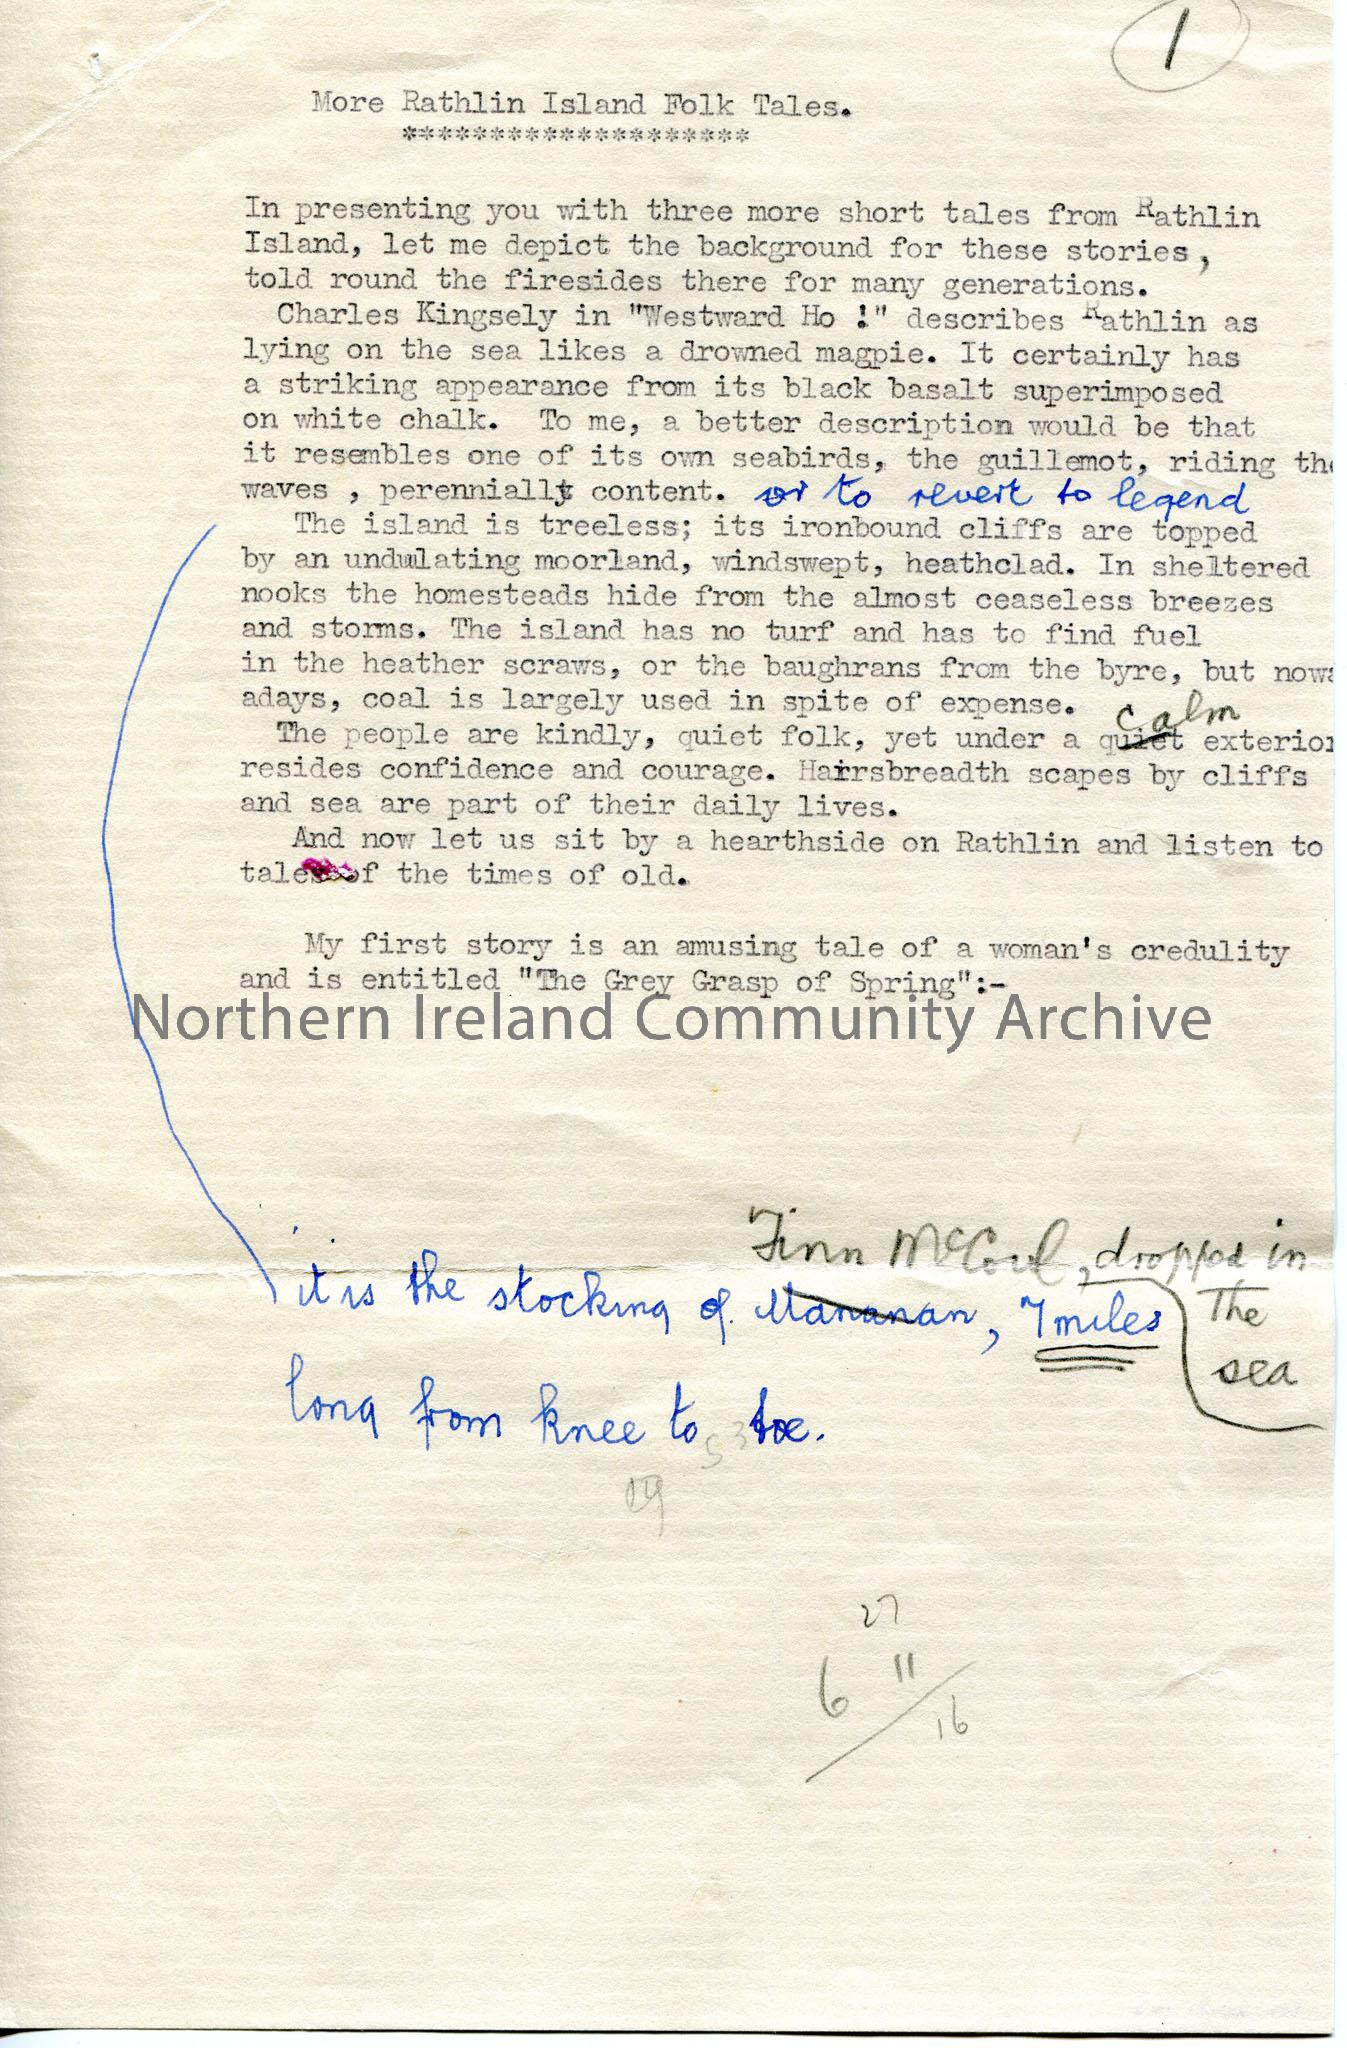 1
More Rathlin Island Folk Tales.
********************
In presenting you with three more short tales from Rathlin
Island, let me depict the background for these stories,
told round the firesides there for many generations.
Charles Kingsely in "Westward Ho !" describes Rathlin as
lying on the sea likes a drowned magpie. It certainly has
a striking appearance from its black basalt superimposed
on white chalk. To me, a better description would be that
it resembles one of its own seabirds, the guillemot, riding the
waves , perennially content. or to revert to legend
The island is treeless; its ironbound cliffs are topped
by an undulating moorland, windswept, heathclad. In sheltered
nooks the homesteads hide from the almost ceaseless breezes
and storms. The island has no turf and has to find fuel
in the heather scraws, or the baughrans from the byre, but nowa
adays, coal is largely used in spite of expense.
calm
The people are kindly, quiet folk, yet under a quiet exterior
resides confidence and courage. Hairrsbreadth scapes by cliffs
and sea are part of their daily lives.
And now let us sit by a hearthside on Rathlin and listen to
tales of the times of old.
My first story is an amusing tale of a woman's credulity
and is entitled "The Grey Grasp of Spring":-
Northern Ireland Community Archive
Finn McCool, dropped in
the
sea
it is the stocking of Mananan, 7 miles
long from knee to toe.
53
19
27
6 11
16